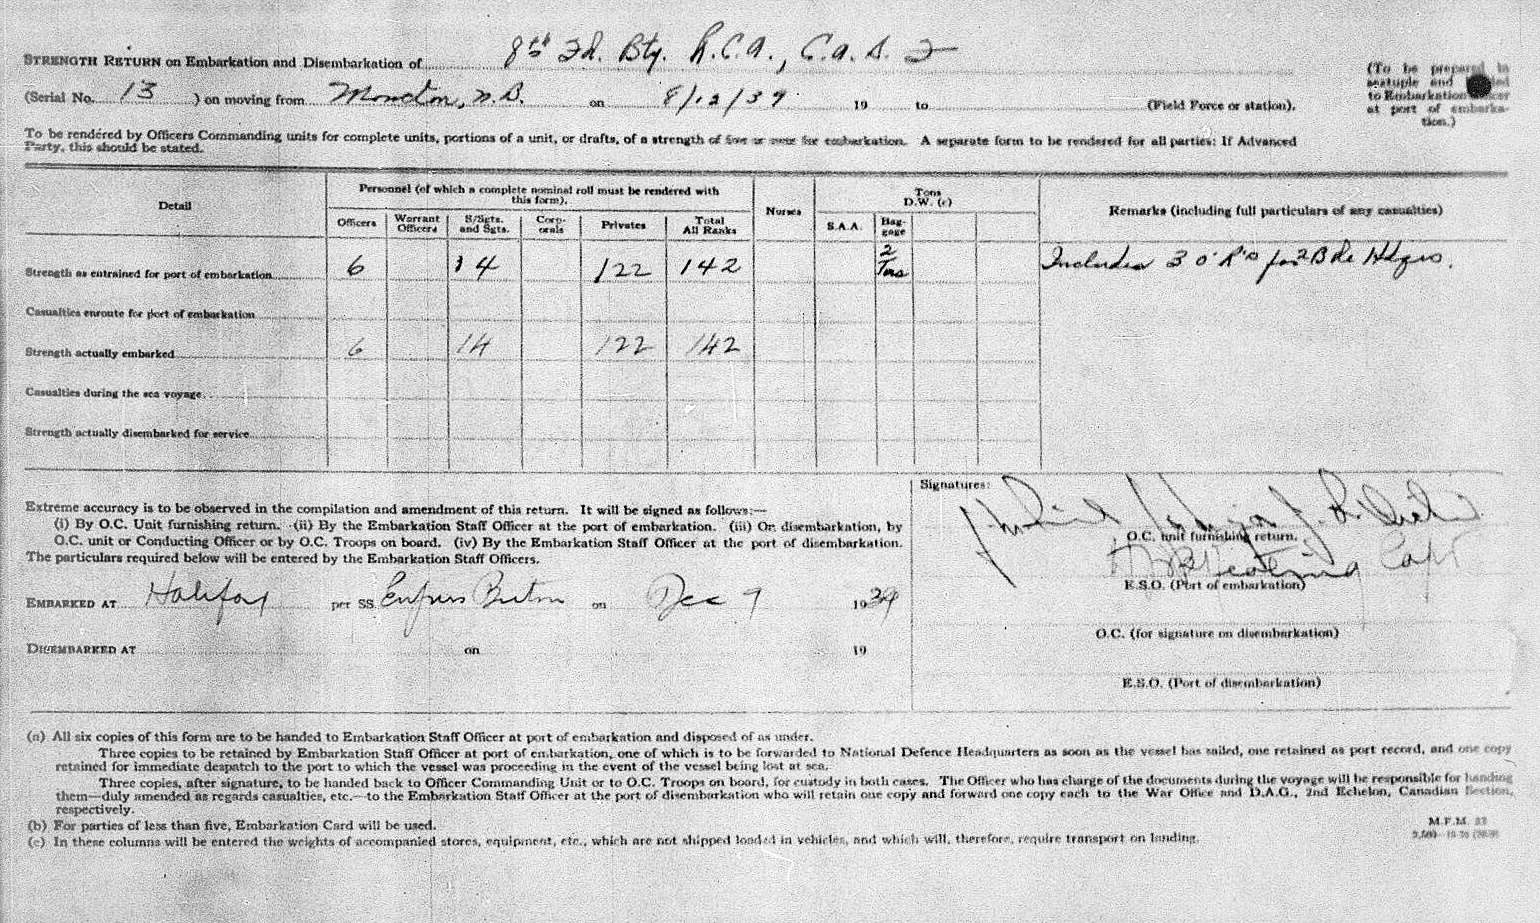 8th Fd. Bty. R.C.A., C.A.S.F
STRENGTH RETURN on Embarkation and Disembarkation of
(Serial No. 13 ) on moving from Moncton, N.B. on 8/12/39 19 to (Field Force or station).
(To be prepared in
sextuple and
to Embarkation Officer
at port of embarka-
tion.)
To be rendered by Officers Commanding units for complete units, portions of a unit, or drafts, of a strength of five or more for embarkation. A separate form to be rendered for all parties: If Advanced
Party, this should be stated.
Detail
Personnel (of which a complete nominal roll must be rendered with
this form).
Nurses
Tons
D.W. (c)
Remarks (including full particulars of any casualties)
Officers
Warrant
Officers
S/Sgts.
and Sgts.
Corp-
orals
Privates
Total
All Ranks
S.A.A.
Bag-
gage
Strength as entrained for port of embarkation 6 14 122 142 2 Tons Includes 3 O.R's for 2 Bde Hdqrs.
Casualties enroute for port of embarkation
Strength actually embarked 6 14 122 142
Casualties during the sea voyage
Strength actually disembarked for service
Extreme accuracy is to be observed in the compilation and amendment of this return. It will be signed as follows:—
(i) By O.C. Unit furnishing return. (ii) By the Embarkation Staff Officer at the port of embarkation. (iii) On disembarkation, by
O.C. unit or Conducting Officer or by O.C. Troops on board. (iv) By the Embarkation Staff Officer at the port of disembarkation.
The particulars required below will be entered by the Embarkation Staff Officers.
EMBARKED AT Halifax per SS. Empress Britain on Dec 9 1939
DISEMBARKED AT on 19
Signatures:
O.C. unit furnishing return.
Capt
E.S.O. (Port of embarkation)
O.C. (for signature on disembarkation)
E.S.O. (Port of disembarkation)
(a) All six copies of this form are to be handed to Embarkation Staff Officer at port of embarkation and disposed of as under.
Three copies to be retained by Embarkation Staff Officer at port of embarkation, one of which is to be forwarded to National Defence Headquarters as soon as the vessel has sailed, one retained as port record, and one copy
retained for immediate despatch to the port to which the vessel was proceeding in the event of the vessel being lost at sea.
Three copies, after signature, to be handed back to Officer Commanding Unit or to O.C. Troops on board, for custody in both cases. The Officer who has charge of the documents during the voyage will be responsible for handing
them—duly amended as regards casualties, etc.—to the Embarkation Staff Officer at the port of disembarkation who will retain one copy and forward one copy each to the War Office and D.A.G., 2nd Echelon, Canadian Section,
respectively.
(b) For parties of less than five, Embarkation Card will be used.
(c) In these columns will be entered the weights of accompanied stores, equipment, etc., which are not shipped loaded in vehicles, and which will, therefore, require transport on landing.
M.F.M. 22